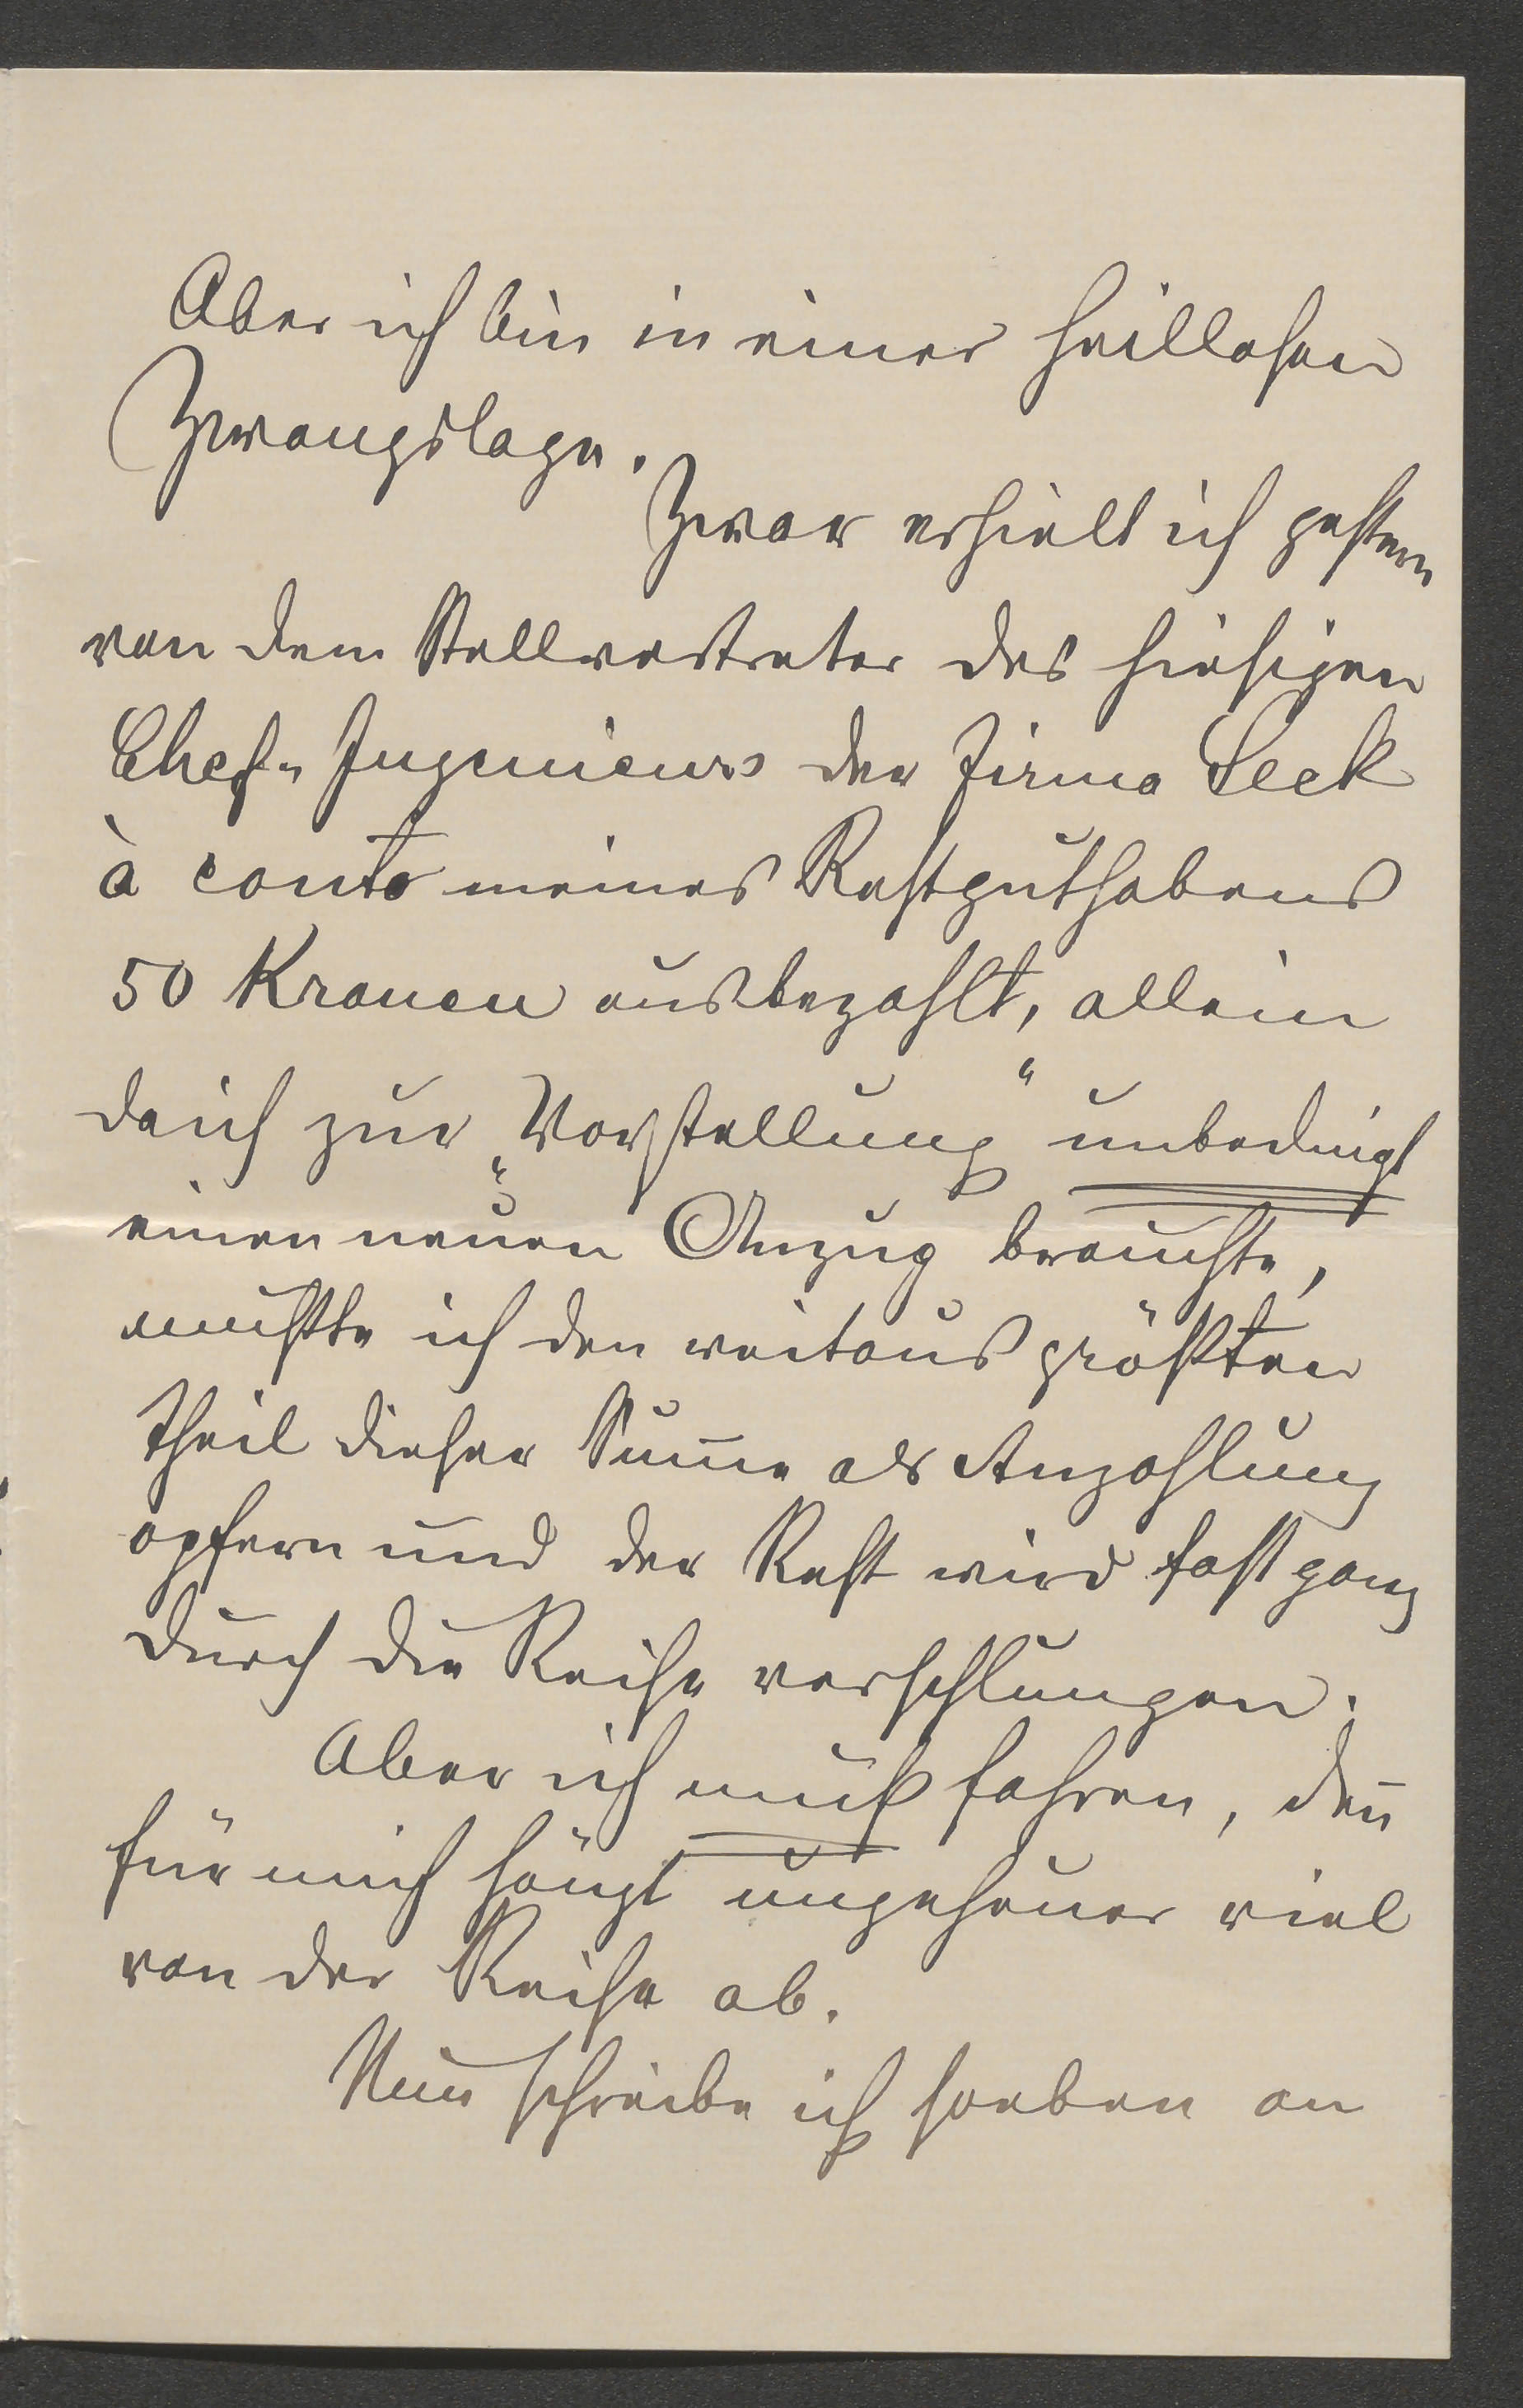 Aber ich bin in einer heillosen
Zwangslage.
Zwar erhielt ich gestern
von dem Stellvertreter des hiesigen
Chef-Ingenieurs der Firma Seek
à conto meines Restguthabens
50 Kronen ausbezahlt, allein
da ich zur „Vorstellung“ unbedingt
einen neuen Anzug brauchte,
mußte ich den weitaus größten
Theil dieser Sum̅e als Anzahlung
opfern und der Rest wird fast ganz
durch die Reise verschlungen.
Aber ich muß fahren, den̅
für mich hängt ungeheuer viel
von der Reise ab.
Nun schreibe ich soeben an